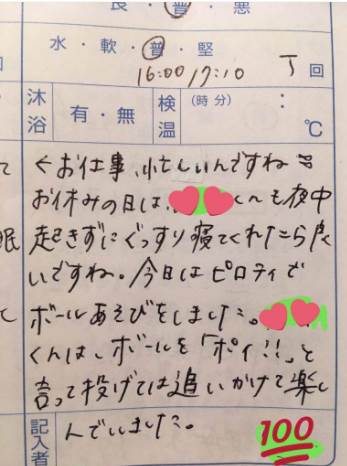 良・普・悪
水・軟・普・堅
16:00 17:10 1回
沐浴 有・無 検温 (時 分) : ℃
←お仕事、忙しいんですね
お休みの日は、くんも夜中
起きずにぐっすり寝てくれたら良
いですね。今日はピロティで
ボールあそびをしました。
くんは、ボールを「ポイ!!」と
言って投げては追いかけて楽し
んでいました。
記入者 100